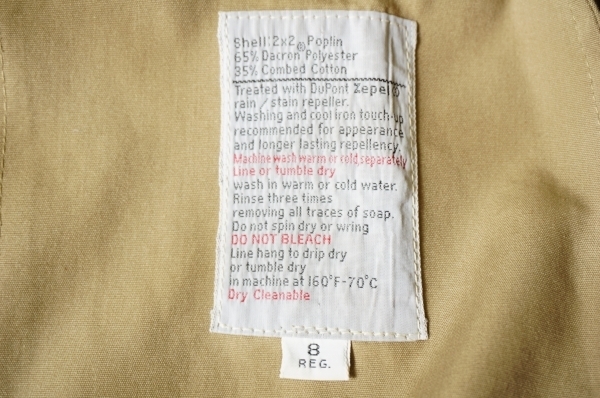 Shell: 2x2 Poplin
65% Dacron® Polyester
35% Combed Cotton
Treated with DuPont Zepel®
rain / stain repeller.
Washing and cool iron touch-up
recommended for appearance
and longer lasting repellency.
Machine wash warm or cold, separately
Line or tumble dry
wash in warm or cold water.
Rinse three times
removing all traces of soap.
Do not spin dry or wring
DO NOT BLEACH
Line hang to drip dry
or tumble dry
in machine at 160°F-70°C
Dry Cleanable
8
REG.